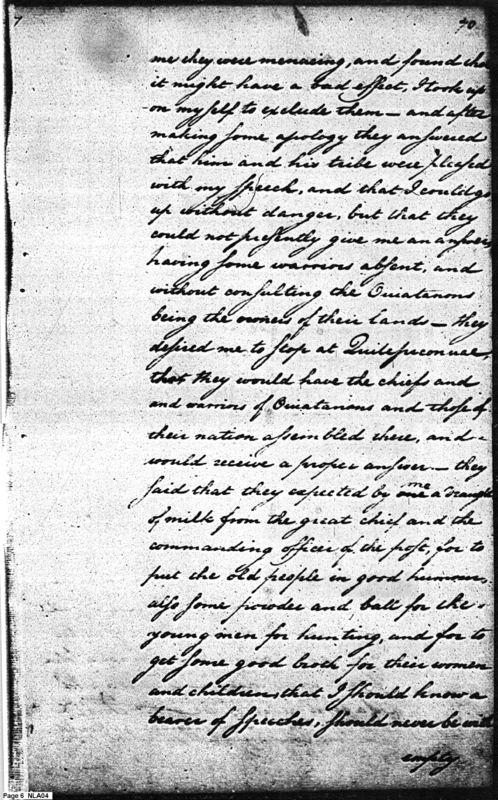 7
40
me they were menacing, and found tha
it might have a bad effect, I took up
on myself to exclude them — and after
making some apology they answered
that him and his tribe were pleased
with my speech, and that I could go
up without danger, but that they
could not presently give me an answer
having some warriors absent, and
without consulting the Ouiatanons
being the owners of their lands — they
desired me to stop at Quitepiconuae,
that they would have the chiefs and
and warriors of Ouiatanons and those of
their nation assembled there, and
would receive a proper answer — they
said that they expected by me a draught
of milk from the great chief and the
commanding officer of the post, for to
put the old people in good humour,
also some powder and ball for the
young men for hunting, and for to
get some good broth for their women
and children, that I should know a
bearer of speeches, should never be with
empty
Page 6 NLA04